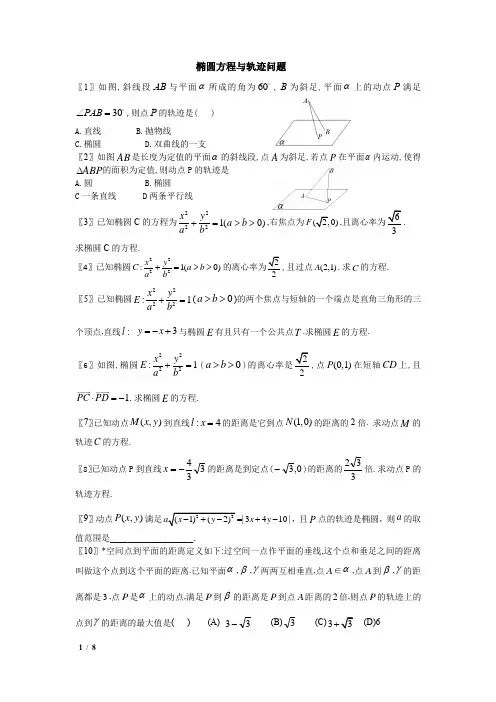 椭圆方程与轨迹问题
〖1〗如图,斜线段AB与平面α所成的角为60°,B为斜足,平面α上的动点P满足
∠PAB=30°,则点P的轨迹是( )
A.直线 B.抛物线
C.椭圆 D.双曲线的一支
A
B
P
α
〖2〗如图AB是长度为定值的平面α的斜线段,点A为斜足,若点P在平面α内运动,使得
ΔABP的面积为定值,则动点P的轨迹是
A.圆 B.椭圆
C一条直线 D两条平行线
B
A
P
α
〖3〗已知椭圆C的方程为x²/a²+y²/b²=1(a>b>0),右焦点为F(√2,0),且离心率为√6/3.
求椭圆C的方程.
〖4〗已知椭圆C:x²/a²+y²/b²=1(a>b>0)的离心率为√2/2,且过点A(2,1).求C的方程.
〖5〗已知椭圆E:x²/a²+y²/b²=1(a>b>0)的两个焦点与短轴的一个端点是直角三角形的三
个顶点,直线l: y=-x+3与椭圆E有且只有一个公共点T.求椭圆E的方程.
〖6〗如图,椭圆E:x²/a²+y²/b²=1(a>b>0)的离心率是√2/2,点P(0,1)在短轴CD上,且
PC·PD=-1.求椭圆E的方程.
〖7〗已知动点M(x,y)到直线l:x=4的距离是它到点N(1,0)的距离的2倍. 求动点M的
轨迹C的方程.
〖8〗已知动点P到直线x=-4/3√3的距离是到定点(-√3,0)的距离的2√3/3倍.求动点P的
轨迹方程.
〖9〗动点P(x,y)满足a√(x-1)²+(y-2)²=|3x+4y-10|,且P点的轨迹是椭圆,则a的取
值范围是________________.
〖10〗*空间点到平面的距离定义如下:过空间一点作平面的垂线,这个点和垂足之间的距离
叫做这个点到这个平面的距离.已知平面α,β,γ两两互相垂直,点A∈α,点A到β,γ的距
离都是3,点P是α上的动点,满足P到β的距离是P到点A距离的2倍,则点P的轨迹上的
点到γ的距离的最大值是( ) (A) 3-√3 (B)√3 (C)3+√3 (D)6
1 / 8